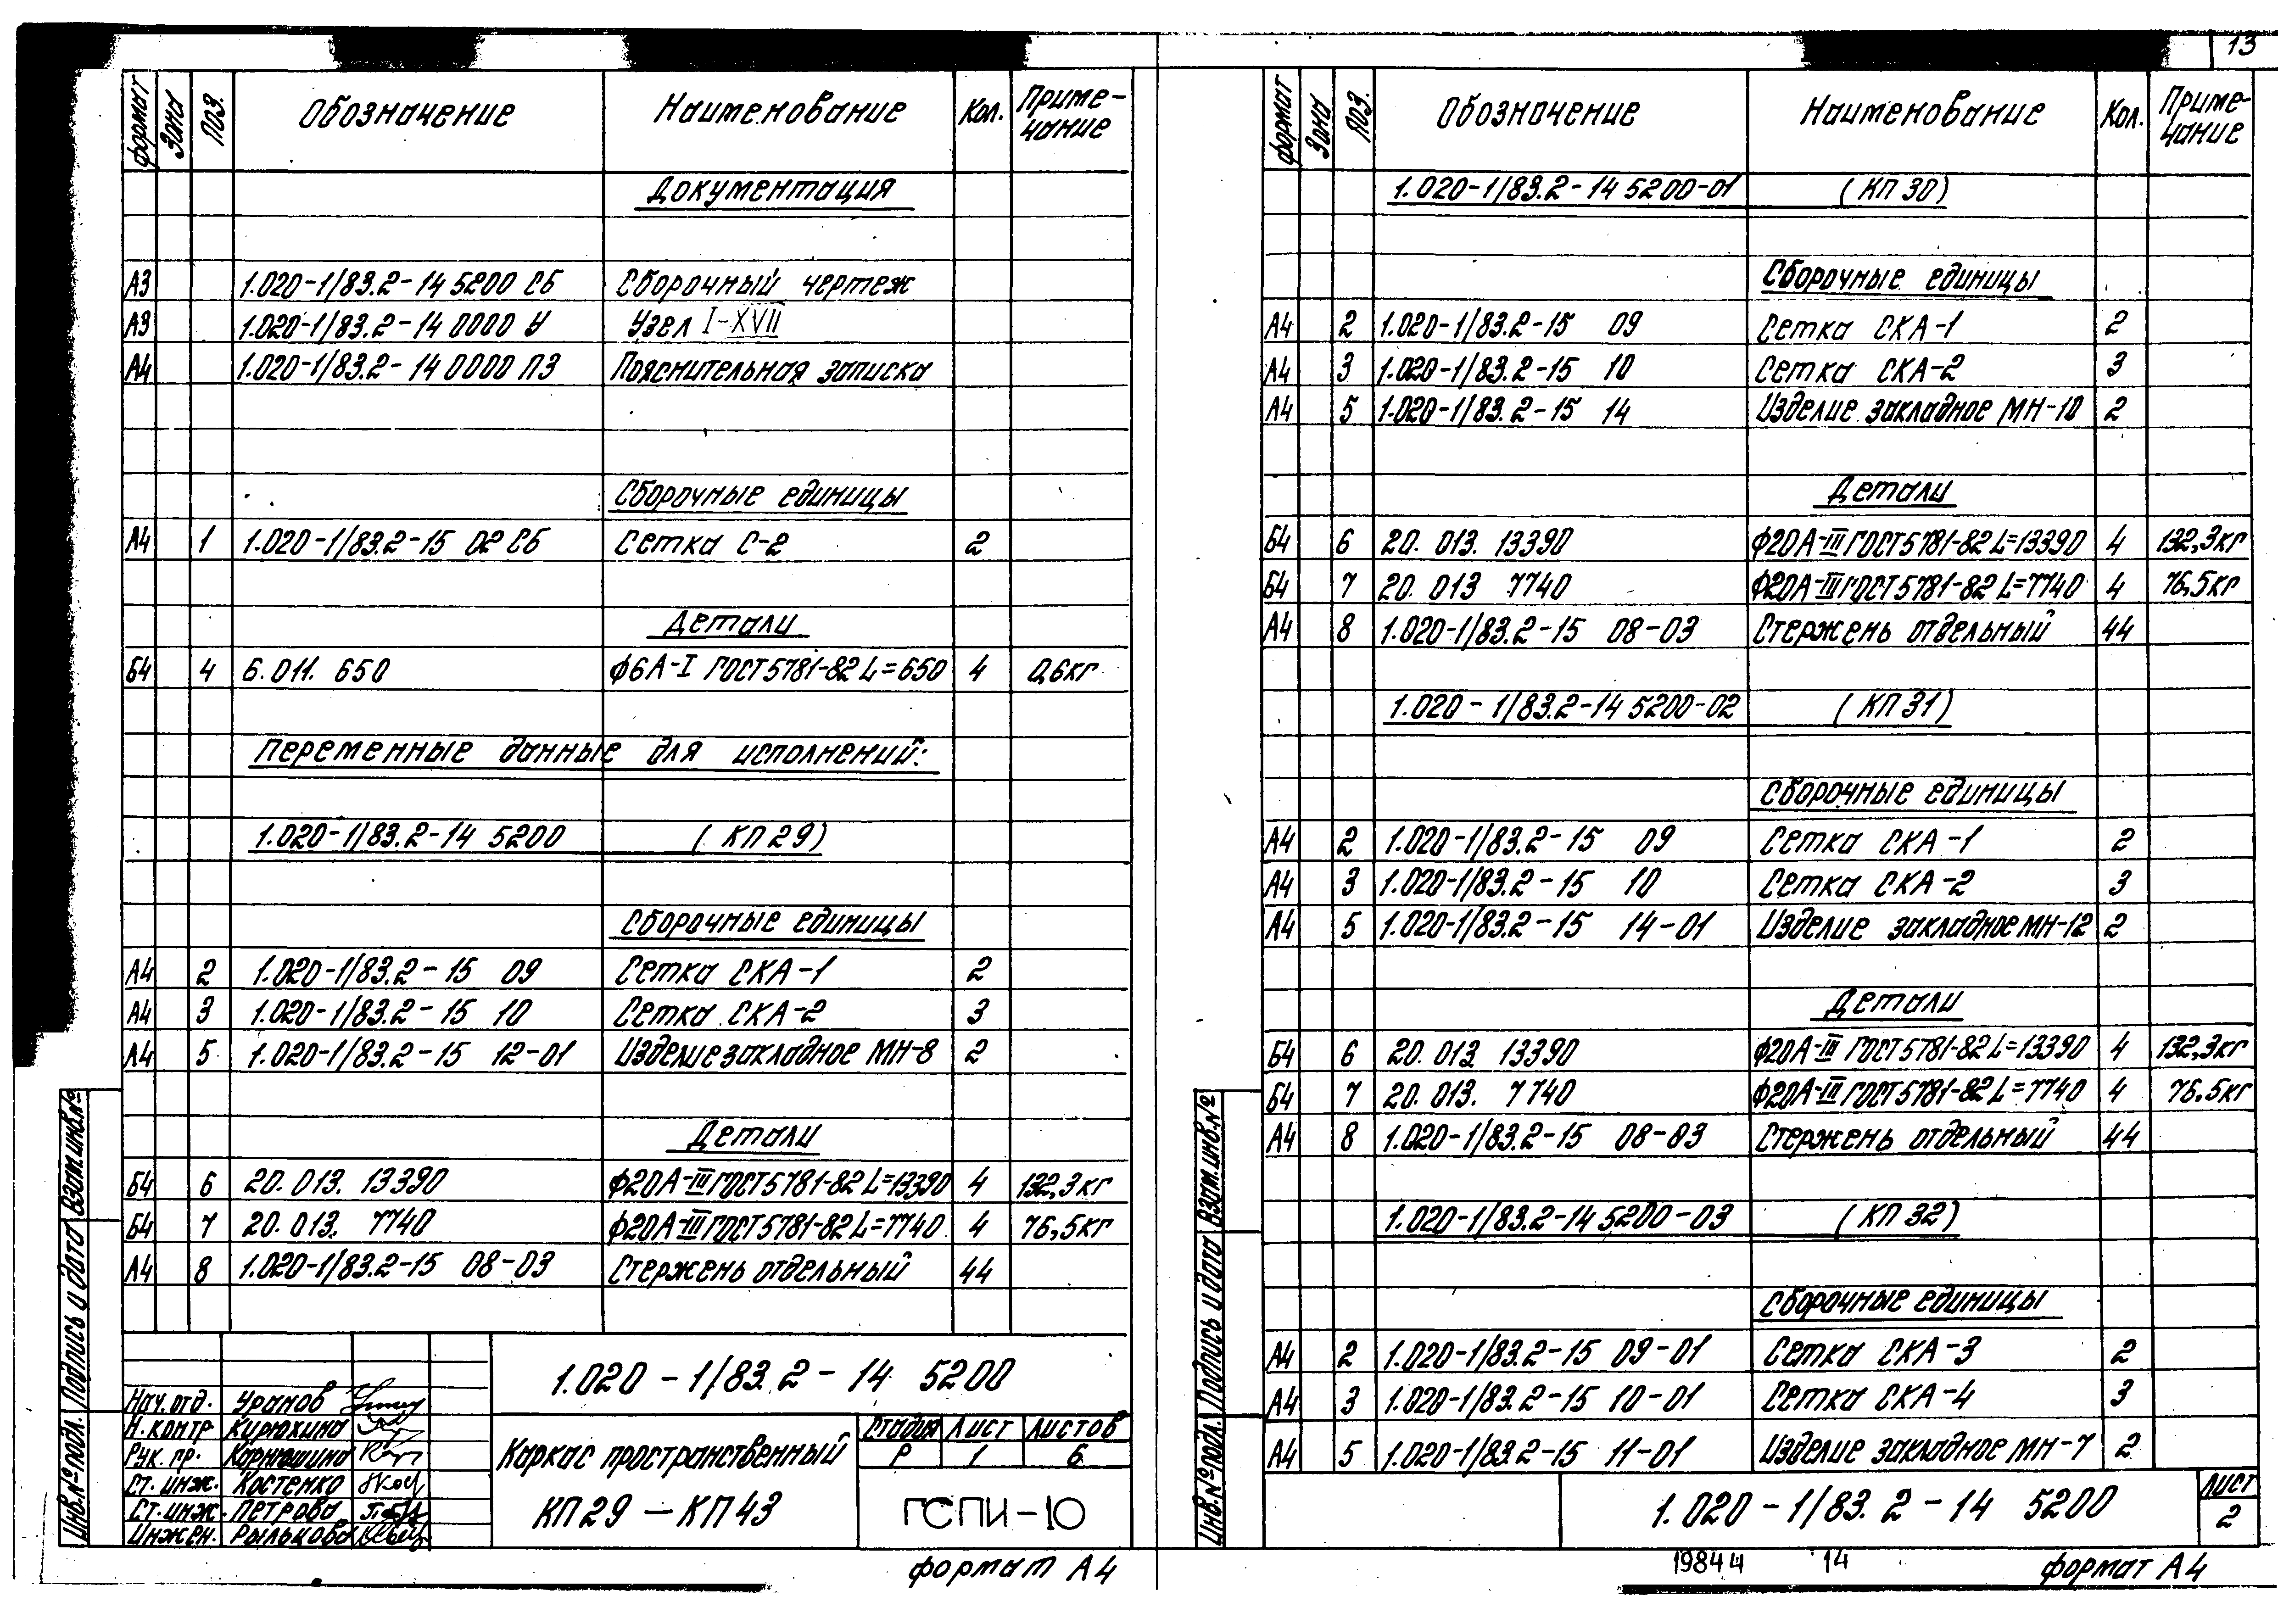 формат Зона Поз. Обозначение Наименование Кол. Приме-
чание
Документация
А3 1.020-1/83.2-14 5200 СБ Сборочный чертеж
А3 1.020-1/83.2-14 0000 У Узел I-XVII
А4 1.020-1/83.2-14 0000 ПЗ Пояснительная записка
Сборочные единицы
А4 1 1.020-1/83.2-15 02 СБ Сетка С-2 2
Детали
Б4 4 6.011. 650 ф6А-I ГОСТ5781-82 L=650 4 0,6кг
Переменные данные для исполнений:
1.020-1/83.2-14 5200 (КП29)
Сборочные единицы
А4 2 1.020-1/83.2-15 09 Сетка СКА-1 2
А4 3 1.020-1/83.2-15 10 Сетка СКА-2 3
А4 5 1.020-1/83.2-15 12-01 Изделие закладное МН-8 2
Детали
Б4 6 20. 013. 13390 ф20А-III ГОСТ5781-82 L=13390 4 132,3кг
Б4 7 20. 013. 7740 ф20А-III ГОСТ5781-82 L=7740 4 76,5кг
А4 8 1.020-1/83.2-15 08-03 Стержень отдельный 44
1.020-1/83.2-14 5200
Нач.отд. Уранов
Н.контр Кирюхина
Рук.пр. Карнюшина
Ст.инж. Костенко
Ст.инж. Петрова
Инжен. Рыльцова
Каркас пространственный
КП29 — КП43
Стадия Лист Листов
Р 1 6
ГСПИ-10
Инв.№подл. Подпись и дата Взам.инв.№
формат А4
13
формат Зона Поз. Обозначение Наименование Кол. Приме-
чание
1.020-1/83.2-14 5200-01 (КП30)
Сборочные единицы
А4 2 1.020-1/83.2-15 09 Сетка СКА-1 2
А4 3 1.020-1/83.2-15 10 Сетка СКА-2 3
А4 5 1.020-1/83.2-15 14 Изделие закладное МН-10 2
Детали
Б4 6 20. 013. 13390 ф20А-III ГОСТ5781-82 L=13390 4 132,3кг
Б4 7 20. 013 7740 ф20А-III ГОСТ5781-82 L=7740 4 76,5кг
А4 8 1.020-1/83.2-15 08-03 Стержень отдельный 44
1.020-1/83.2-14 5200-02 (КП31)
Сборочные единицы
А4 2 1.020-1/83.2-15 09 Сетка СКА-1 2
А4 3 1.020-1/83.2-15 10 Сетка СКА-2 3
А4 5 1.020-1/83.2-15 14-01 Изделие закладное МН-12 2
Детали
Б4 6 20. 013 13390 ф20А-III ГОСТ5781-82 L=13390 4 132,3кг
Б4 7 20. 013. 7740 ф20А-III ГОСТ5781-82 L=7740 4 76.5кг
А4 8 1.020-1/83.2-15 08-03 Стержень отдельный 44
1.020-1/83.2-14 5200-03 (КП32)
Сборочные единицы
А4 2 1.020-1/83.2-15 09-01 Сетка СКА-3 2
А4 3 1.020-1/83.2-15 10-01 Сетка СКА-4 3
А4 5 1.020-1/83.2-15 11-01 Изделие закладное МН-7 2
Инв.№подл. Подпись и дата Взам.инв.№
1.020-1/83.2-14 5200
Лист
2
19844 14 формат А4